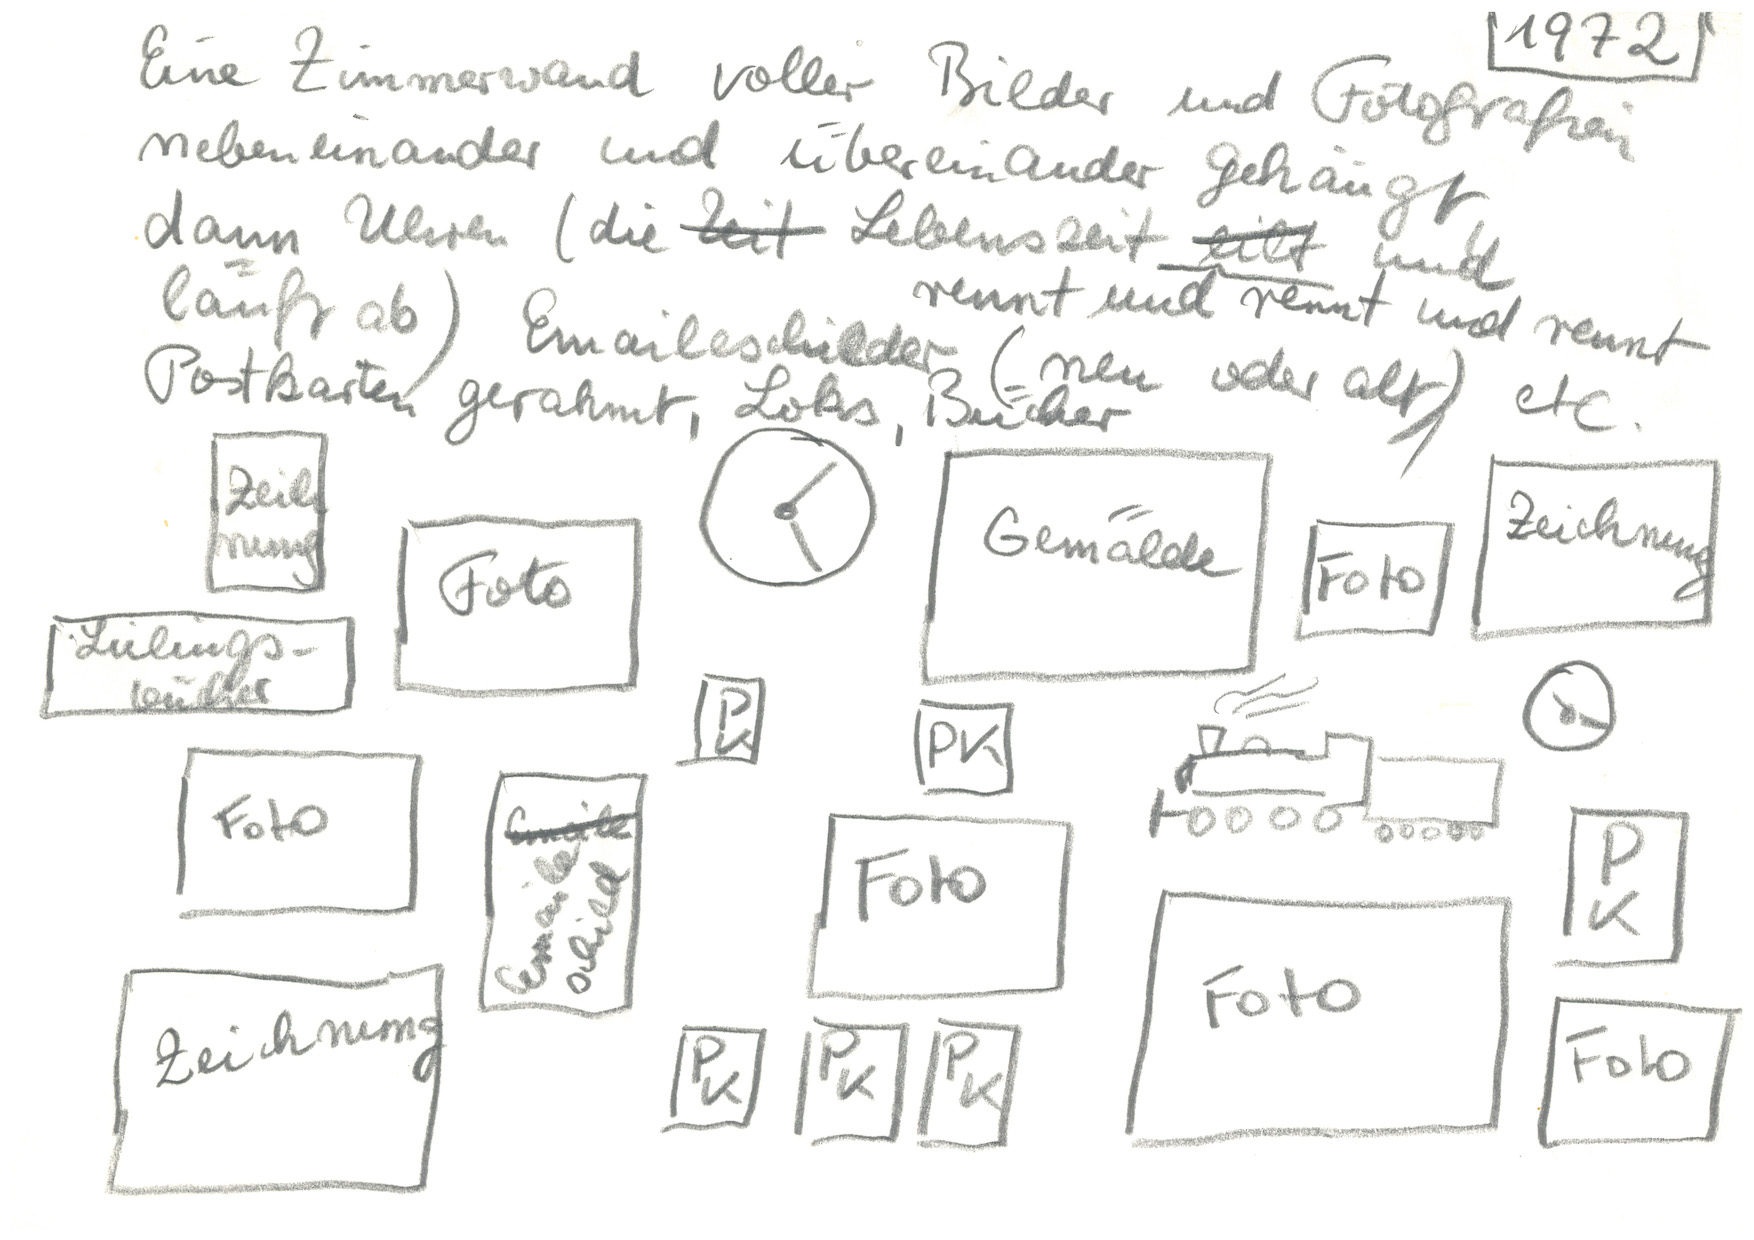 1972
Eine Zimmerwand voller Bilder und Fotografien
nebeneinander und übereinander gehängt,
dann Uhren (die Zeit Lebenszeit eilt und
rennt und rennt und rennt
läuft ab) Emaileschilder (neu oder alt) etc.
Postkarten gerahmt, Loks, Bücher
Zeich
nung
Foto
Gemälde
Foto
Zeichnung
Lieblings-
bücher
P
K
PK
Foto
Emaile
Emaile
schild
Foto
P
K
Zeichnung
P
K
P
K
P
K
Foto
Foto